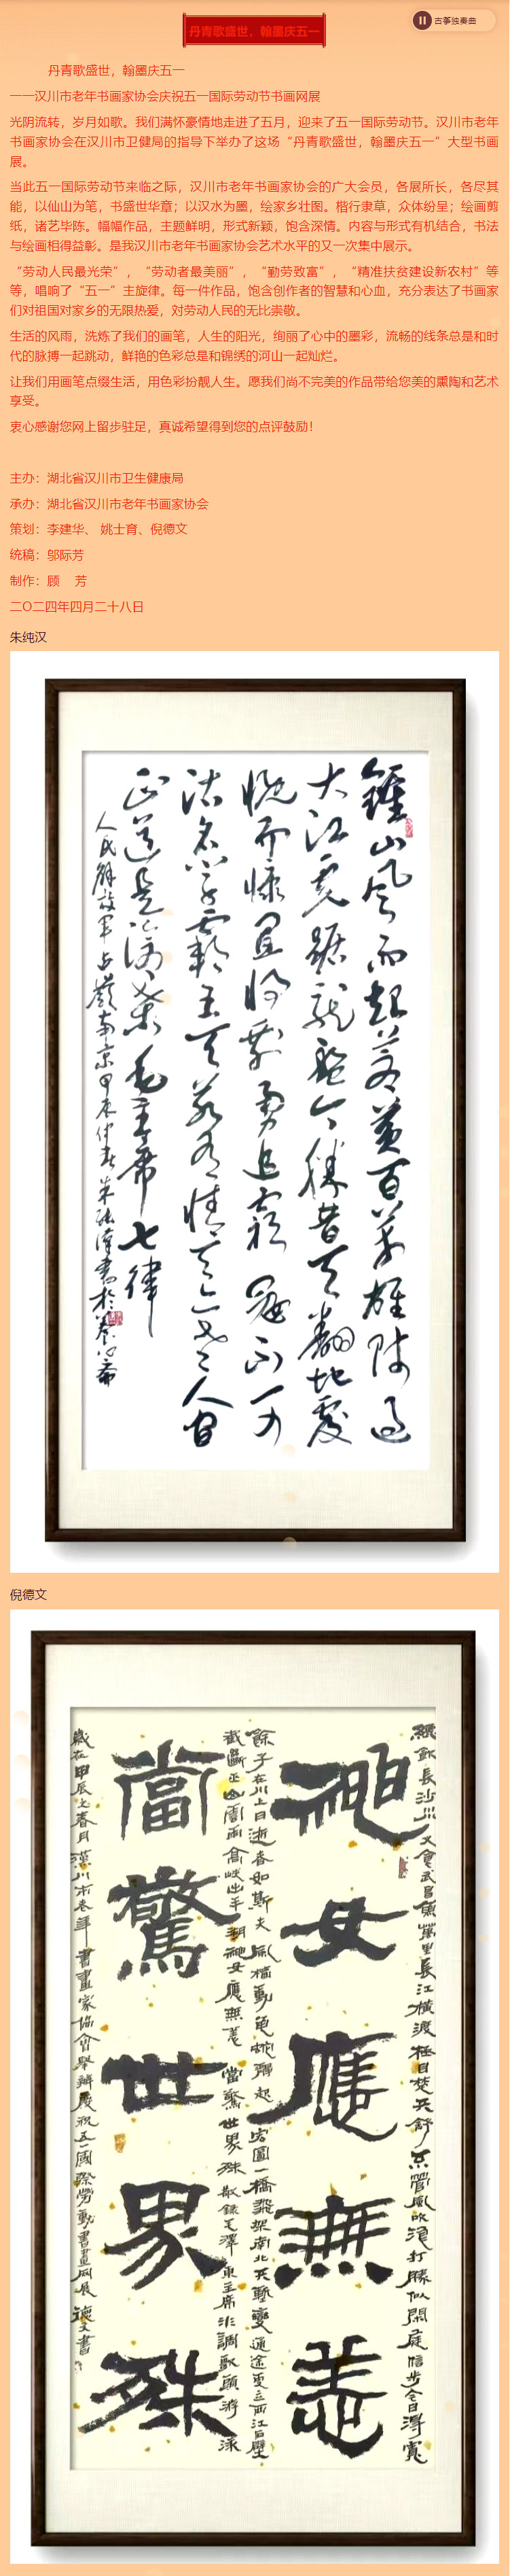 丹青歌盛世，翰墨庆五一
古筝独奏曲
丹青歌盛世，翰墨庆五一
——汉川市老年书画家协会庆祝五一国际劳动节书画网展
光阴流转，岁月如歌。我们满怀豪情地走进了五月，迎来了五一国际劳动节。汉川市老年
书画家协会在汉川市卫健局的指导下举办了这场“丹青歌盛世，翰墨庆五一”大型书画
展。
当此五一国际劳动节来临之际，汉川市老年书画家协会的广大会员，各展所长，各尽其
能，以仙山为笔，书盛世华章；以汉水为墨，绘家乡壮图。楷行隶草，众体纷呈；绘画剪
纸，诸艺毕陈。幅幅作品，主题鲜明，形式新颖，饱含深情。内容与形式有机结合，书法
与绘画相得益彰。是我汉川市老年书画家协会艺术水平的又一次集中展示。
“劳动人民最光荣”，“劳动者最美丽”，“勤劳致富”，“精准扶贫建设新农村”等
等，唱响了“五一”主旋律。每一件作品，饱含创作者的智慧和心血，充分表达了书画家
们对祖国对家乡的无限热爱，对劳动人民的无比崇敬。
生活的风雨，洗炼了我们的画笔，人生的阳光，绚丽了心中的墨彩，流畅的线条总是和时
代的脉搏一起跳动，鲜艳的色彩总是和锦绣的河山一起灿烂。
让我们用画笔点缀生活，用色彩扮靓人生。愿我们尚不完美的作品带给您美的薰陶和艺术
享受。
衷心感谢您网上留步驻足，真诚希望得到您的点评鼓励！
主办：湖北省汉川市卫生健康局
承办：湖北省汉川市老年书画家协会
策划：李建华、 姚士育、倪德文
统稿：邬际芳
制作：顾 芳
二〇二四年四月二十八日
朱纯汉
鍾山风雨起苍黄百万雄师过
大江虎踞龙盘今胜昔天翻地覆
慨而慷宜将剩勇追穷寇不可
沽名学霸王天若有情天亦老人间
正道是沧桑毛主席七律
人民解放军占领南京甲辰仲春朱纯漢書於
倪德文
纔飲長沙水又食武昌魚萬里長江橫渡極目楚天舒不管風吹浪打勝似閑庭信步今日得寬
神女應無恙
餘子在川上曰逝者如斯夫風檣動龜蛇靜起宏圖一橋飛架南北天塹變通途更立西江石壁
截斷巫山雲雨高峽出平湖神女應無恙當驚世界殊敬錄毛澤東主席水調歌頭游泳
當驚世界殊
歲在甲辰之春月漢川市老年書畫家協會舉辦慶祝五一國際勞動書畫网展德文書